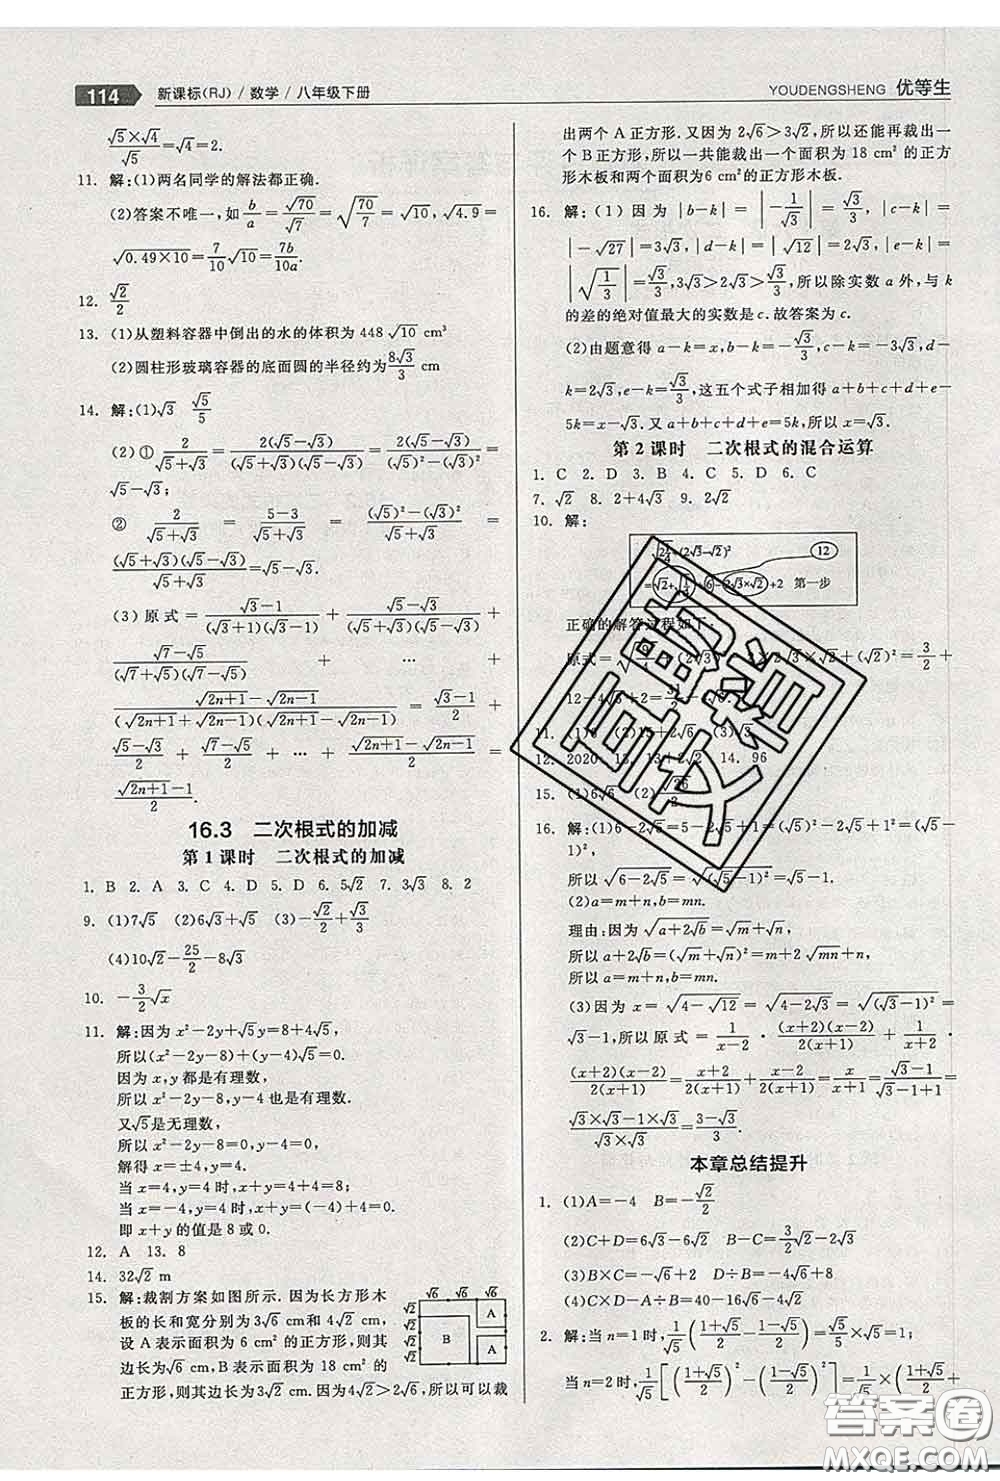 114 新课标(RJ) / 数学 / 八年级下册
YOUDENGSHENG 优等生
√5×√4/√5=√4=2.
11. 解:(1)两名同学的解法都正确.
(2)答案不唯一,如b/a=√70/√7=√(70/7)=√10,√4.9=
√0.49×10=7/10√10=7b/10a.
12. √2/2
13. (1)从塑料容器中倒出的水的体积为 448√10 cm³
(2)圆柱形玻璃容器的底面圆的半径约为8√3/3 cm
14. 解:(1)√3 √5/5
(2)① 2/(√5+√3) = 2(√5-√3)/((√5+√3)(√5-√3)) = 2(√5-√3)/((√5)²-(√3)²) =
√5-√3;
② 2/(√5+√3) = (5-3)/(√5+√3) = ((√5)²-(√3)²)/(√5+√3) =
(√5+√3)(√5-√3)/(√5+√3)=√5-√3.
(3)原式=(√3-1)/((√3+1)(√3-1)) + (√5-√3)/((√5+√3)(√5-√3)) +
(√7-√5)/((√7+√5)(√7-√5)) + … +
(√2n+1-√2n-1)/((√2n+1+√2n-1)(√2n+1-√2n-1)) = (√3-1)/2 +
(√5-√3)/2 + (√7-√5)/2 + … + (√2n+1-√2n-1)/2 =
(√2n+1-1)/2.
16.3 二次根式的加减
第1课时 二次根式的加减
1. B 2. A 3. C 4. D 5. D 6. 5√2 7. 3√3 8. 2
9. (1)7√5 (2)6√3+√5 (3)-√2/2+√3/2
(4)10√2-25/2-8√3
10. -3/2√x
11. 解:因为 x²-2y+√5y=8+4√5,
所以(x²-2y-8)+√5(y-4)=0.
因为 x,y 都是有理数,
所以 x²-2y-8,y-4 也是有理数.
又√5是无理数,
所以 x²-2y-8=0,y-4=0.
解得 x=±4,y=4.
当 x=4,y=4 时,x+y=4+4=8;
当 x=-4,y=4 时,x+y=-4+4=0.
即 x+y 的值是 8 或 0.
12. A 13. 8
14. 32√2 m
15. 解:裁割方案如图所示. 因为长方形木
板的长和宽分别为 3√6 cm和 4√2 cm,
设 A 表示面积为 6 cm² 的正方形,则其
边长为√6 cm,B 表示面积为 18 cm² 的
正方形,则其边长为 3√2 cm. 因为 4√2>2√6,所以可以裁
√6 √6 √6
√2
√2
√2
√2
A
B
A
出两个 A 正方形. 又因为 2√6>3√2,所以还能再裁出一
个 B 正方形. 所以一共能裁出一个面积为 18 cm² 的正方
形木板和两个面积为6 cm² 的正方形木板.
16. 解:(1)因为|b-k|=|-1/√3|=√3/3,|c-k|=
|-√27|=3√3,|d-k|=|√12|=2√3,|e-k|=
|√(1/3)|=√3/3,3√3>2√3>√3/3,所以除实数 a 外,与 k
的差的绝对值最大的实数是 c. 故答案为 c.
(2)由题意得 a-k=x,b-k=-√3/3,c-k=-3√3,d-
k=2√3,e-k=√3/3,这五个式子相加得 a+b+c+d+e-
5k=x-√3. 又 a+b+c+d+e=5k,所以 x=√3.
第2课时 二次根式的混合运算
1. C 2. D 3. B 4. C 5. D 6. C
7. √2 8. 2+4√3 9. 2√2
10. 解:
√(2¼)+(2√3-√2)² 12
=√2+√(1/4)+6-2√3×√2+2 第一步
正确的解答过程如下:
2√3×√2+(√2)²=3/2+
12-4√6+2=
11.
12. 2020 14. 96
15. (1)6√6 (2)
16. 解:(1)6-2√5=5-2√5+1=(√5)²-2√5+1²=(√5-
1)²,
所以√(6-2√5)=√(√5-1)²=√5-1.
(2)a=m+n,b=mn.
理由:因为√(a+2√b)=√m+√n,
所以 a+2√b=(√m+√n)²=m+n+2√mn,
所以 a=m+n,b=mn.
(3)因为 x=√(4-√12)=√(4-2√3)=√(√3-1)²=
√3-1,所以原式=1/(x-2)·(x+2)(x-2)/2(x+1)+1/(x+2)·
(x+2)(x-2)/2(x+1)=(x+2)/2(x+1)+(x-2)/2(x+1)=x/(x+1)=(√3-1)/(√3-1+1)=
(√3×√3-1×√3)/(√3×√3)=(3-√3)/3.
本章总结提升
1. (1)A=-4 B=-√2/2
(2)C+D=6√3-6√2 B-C=3/2√2-2√3
(3)B×C=-√6+2 D÷B=-4√6+8
(4)C×D-A÷B=40-16√6-4√2
2. 解:当 n=1 时,1/√5((1+√5)/2-(1-√5)/2)=1/√5×√5=1;
当 n=2 时,1/√5[((1+√5)/2)²-((1-√5)/2)²]=1/√5×((1+√5)/2+
答案圈
MXQE.COM